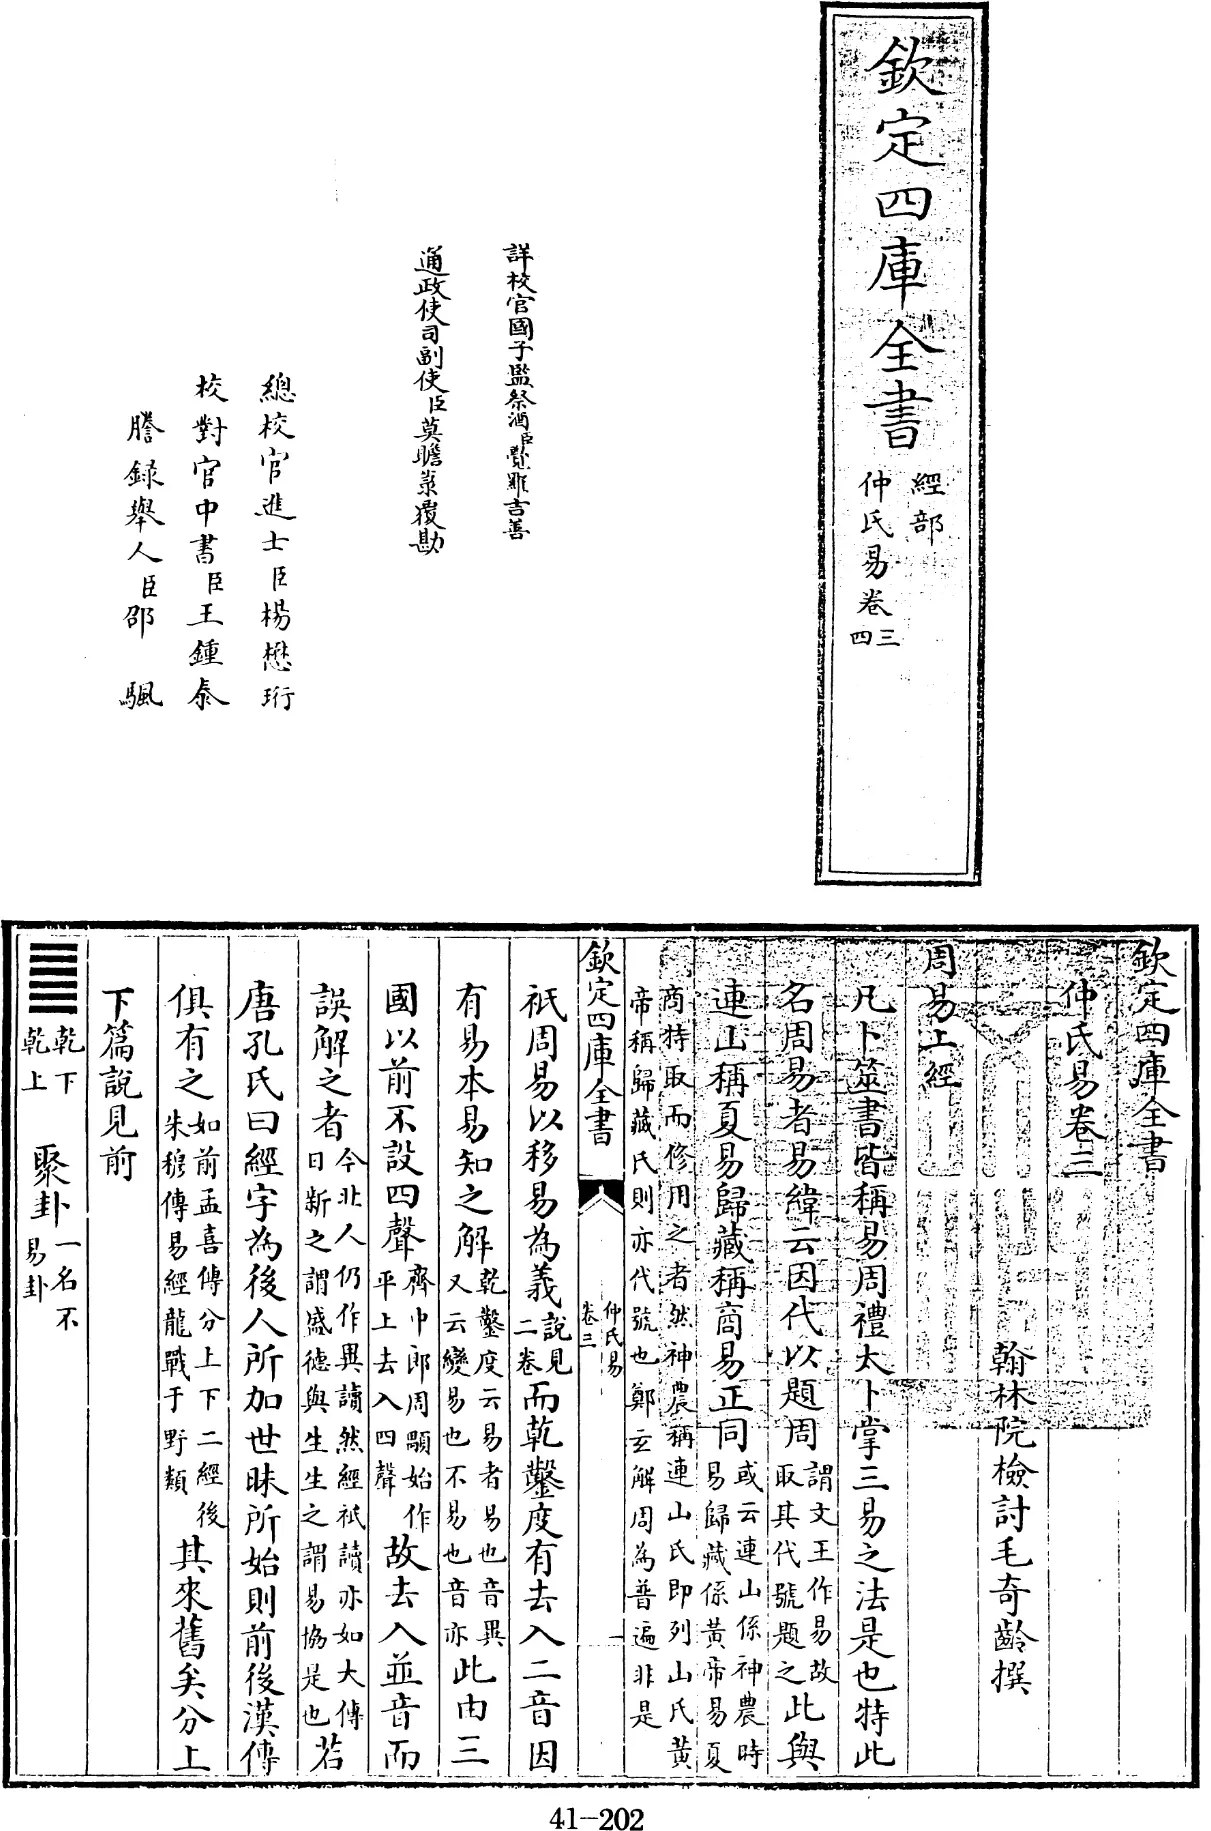 欽定四庫全書
經部
仲氏易卷三
四
詳校官國子監祭酒臣覺羅吉善
通政使司副使臣莫瞻菉覆勘
總校官進士臣楊懋珩
校對官中書臣王鍾泰
謄錄舉人臣邵颿
欽定四庫全書
仲氏易卷三
翰林院檢討毛奇齡撰
周易上經
凡卜筮書皆稱易周禮太卜掌三易之法是也特此
名周易者易緯云因代以題周謂文王作易故取其代號題之此與
連山稱夏易歸藏稱商易正同或云連山係神農時易歸藏係黃帝易夏
商特取而修用之者然神農稱連山氏即列山氏黃帝稱歸藏氏則亦代號也鄭玄解周為普遍非是
欽定四庫全書
仲氏易
卷三
一
祇周易以移易為義說見二卷而乾鑿度有去入二音因
有易本易知之解乾鑿度云易者易也音異又云變易也不易也音亦此由三
國以前不設四聲齊中郎周顒始作平上去入四聲故去入並音而
誤解之者今北人仍作異讀然經祇讀亦如大傳日新之謂盛德與生生之謂易協是也若
唐孔氏曰經字為後人所加世昧所始則前後漢傳
俱有之如前孟喜傳分上下二經後朱穆傳易經龍戰于野類其來舊矣分上
下篇說見前
䷀乾下乾上 聚卦一名不易卦
41-202